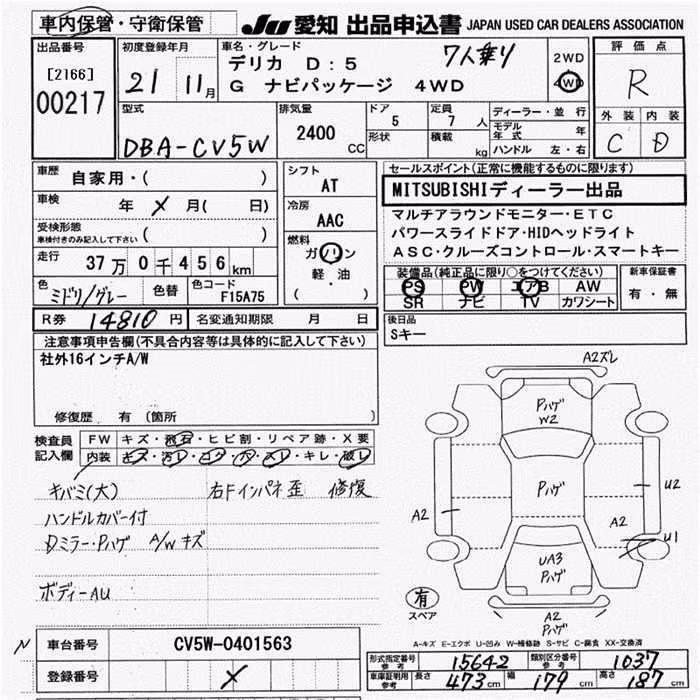 車内保管・守衛保管
JU 愛知 出品申込書 JAPAN USED CAR DEALERS ASSOCIATION
出品番号
[2166]
00217
初度登録年月
21 11月
車名・グレード
デリカ D:5 7人乗り
G ナビパッケージ 4WD
2WD
4WD
評価点
R
外装 内装
C D
型式
DBA-CV5W
排気量
2400 CC
ドア 5
形状
定員 7 人
積載 kg
ディーラー・並行
モデル年式 年
ハンドル 左・右
車歴 自家用・( )
車検 年 メ 月( 日)
受検形態
車検付きのみ記入して下さい ( )
走行 37万0千456km
色 ミドリ/グレー
色替
色コード F15A75
シフト
AT
冷房
AAC
燃料
ガソリン
軽・油
( )
セールスポイント(正常に機能するものに限ります)
MITSUBISHIディーラー出品
マルチアラウンドモニター・ETC
パワースライドドア・HIDヘッドライト
ASC・クルーズコントロール・スマートキー
装備品(純正品に限り○をつけてください)
PS PW エアB AW
SR ナビ TV カワシート
新車保証書
有・無
R券 14810円
名変通知期限 月 日
後日品
Sキー
注意事項申告欄(不具合内容等は具体的に記入して下さい)
社外16インチA/W
修復歴 有 (箇所 )
検査員記入欄
FW キズ・飛石・ヒビ割・リペア跡・X要
内装 キズ・汚レ・コゲ・穴・スレ・キレ・破レ
キバミ(大) 右Fインパネ歪 修復
ハンドルカバー付
Dミラー・Pハゲ A/Wキズ
ボディーAU
A2ズレ
Pハゲ
W2
Pハゲ
U2
A2
A2
U1
UA3
Pハゲ
有
スペア
A2
Pハゲ
A-キズ E-エクボ U-凹み W-補修跡 S-サビ C-腐食 XX-交換済
N
車台番号 CV5W-0401563
登録番号 メ
形式指定番号 参考 15642
類別区分番号 参考 1037
車庫証明用 参考 長さ 473cm 幅 179cm 高さ 187cm